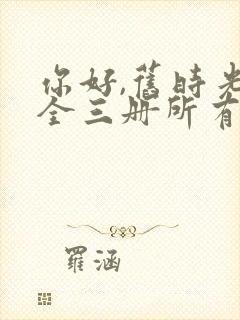 你好,舊時光
全三册所有
羅涵